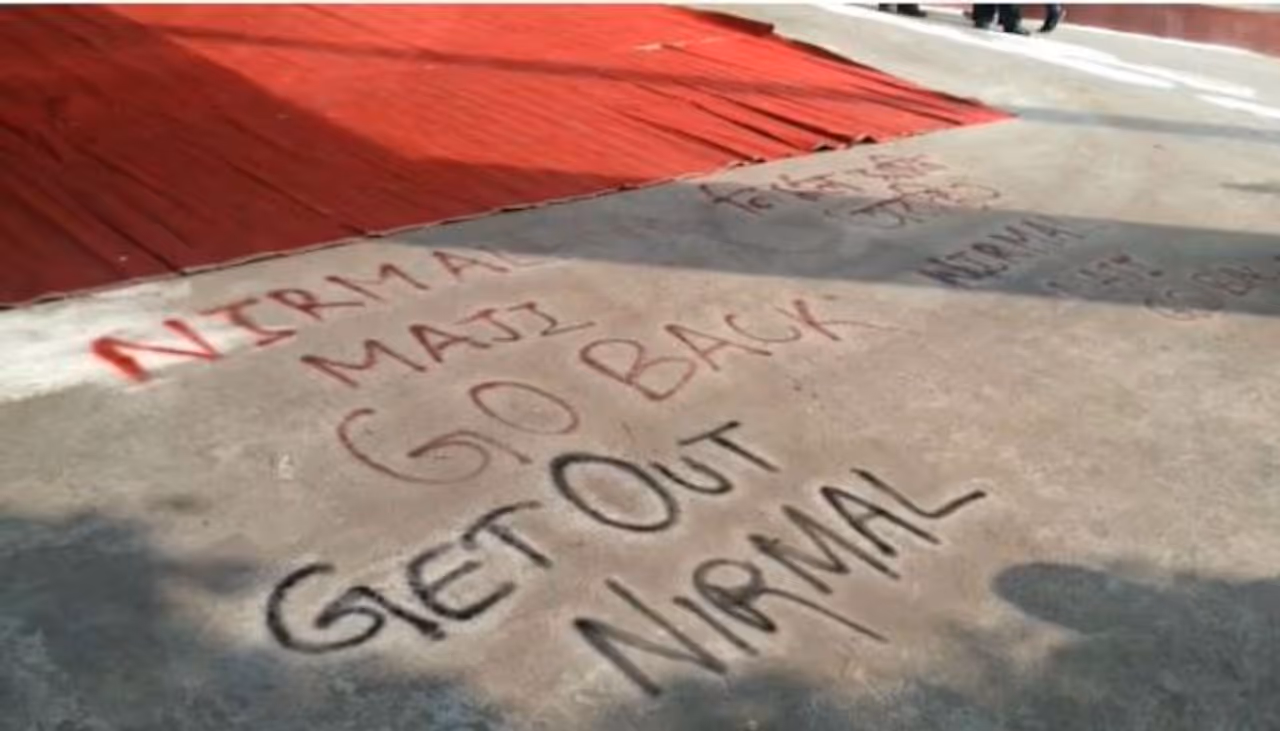 NIRMAL
MAJI
GO BACK
GET OUT
NIRMAL
NIRMAL